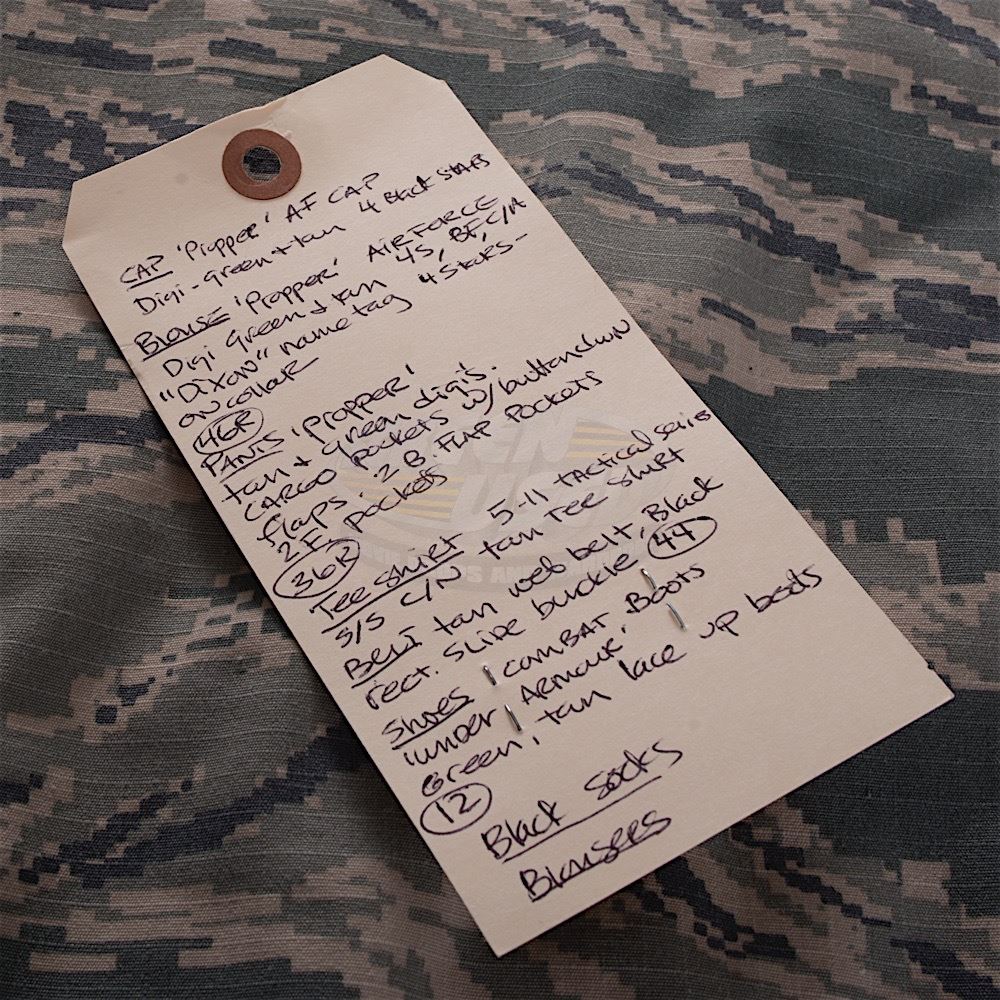 CAP 'Propper' AF CAP
Digi-green + tan 4 Black STARS
Blouse 'Propper' AIRFORCE
Digi green + tan 4S, BF, C/N
"DIXON" nametag 4 Stars-
on collar
46R
PANTS 'Propper'
tan + green digi's.
CARGO pockets w/ buttondown
flaps. 2 B. FLAP Pockets
2 F. pockets
36R
Tee Shirt 5-11 tactical series
S/S C/N tan Tee Shirt
Belt tan web belt, Black
rect. Slide buckle 44
Shoes combat Boots
'under Armour'
Green, tan lace up boots
12
Black Socks
Blousers